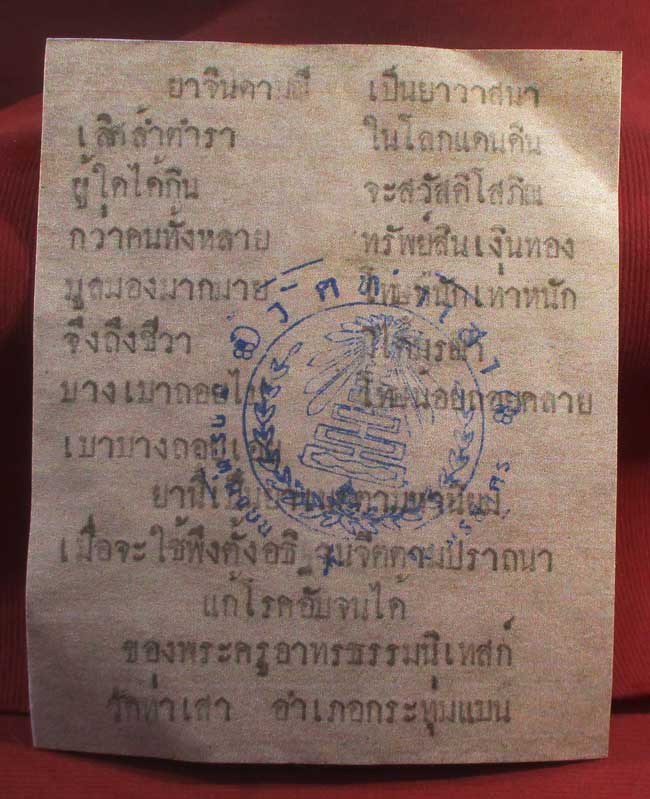 ยาจินดามณี เป็นยาวาสนา
เลิศล้ำตำรา ในโลกแดนดิน
ผู้ใดได้กิน จะสวัสดิโสภิณ
กว่าคนทั้งหลาย ทรัพย์สินเงินทอง
มูลมองมากมาย โทษหนักเท่าหนัก
จึงถึงชีวา
บางเบาถอย โทษน้อยถอยคลาย
เบาบางถอย
ยานี้เป็น
เมื่อจะใช้พึงตั้งอธิ จิตตามปราถนา
แก้โรคอับจนได้
ของพระครูอาทรธรรมนิเทสก์
วัดท่าเสา อำเภอกระทุ่มแบน
วัดท่าเสา